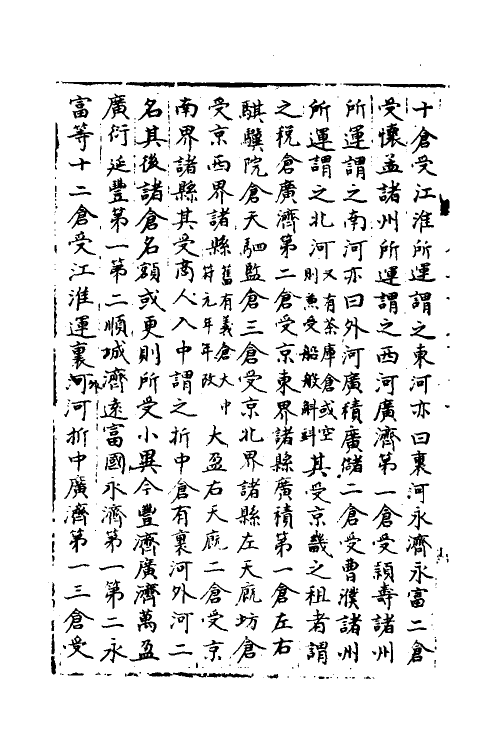 十倉受江淮所運謂之東河亦曰裏河永濟永富二倉
受懷孟諸州所運謂之西河廣濟第一倉受穎壽諸州
所運謂之南河亦曰外河廣積廣儲二倉受曹濮諸州
所運謂之北河又有茶庫倉或空則兼受船般斛㪷其受京畿之租者謂
之稅倉廣濟第二倉受京東界諸縣廣積第一倉左右
騏驥院倉天駟監倉三倉受京北界諸縣左天廐坊倉
受京西界諸縣舊有義倉大中符元年年改大盈右天廐二倉受京
南界諸縣其受商人入中謂之折中倉有裏河外河二
名其後諸倉名額或更則所受小異今豐濟廣濟萬盈
廣衍延豐第一第二順城濟遠富國永濟第一第二永
富等十二倉受江淮運裏河外河折中廣濟第一三倉受